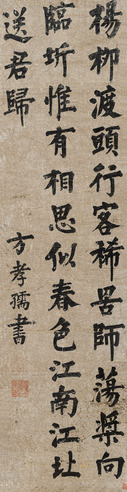 楊柳渡頭行客稀罟師蕩槳向
臨圻惟有相思似春色江南江北
送君歸
方孝孺書